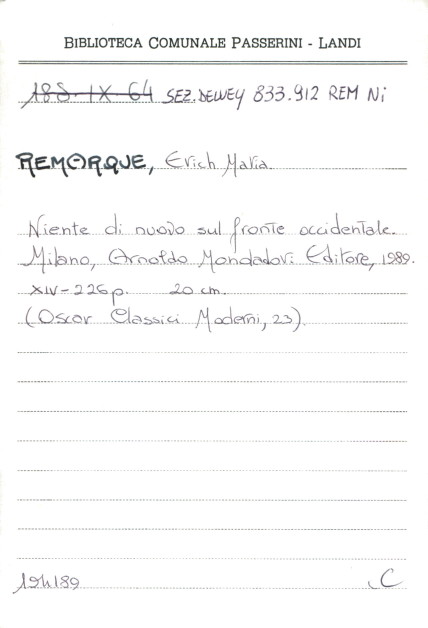 BIBLIOTECA COMUNALE PASSERINI - LANDI
18S-IX-64 SEZ.DEWEY 833.912 REM Ni
REMARQUE, Erich Maria.
Niente di nuovo sul fronte occidentale.
Milano, Arnoldo Mondadori Editore, 1989.
XIV-226 p. 20 cm.
(Oscar Classici Moderni, 23).
C